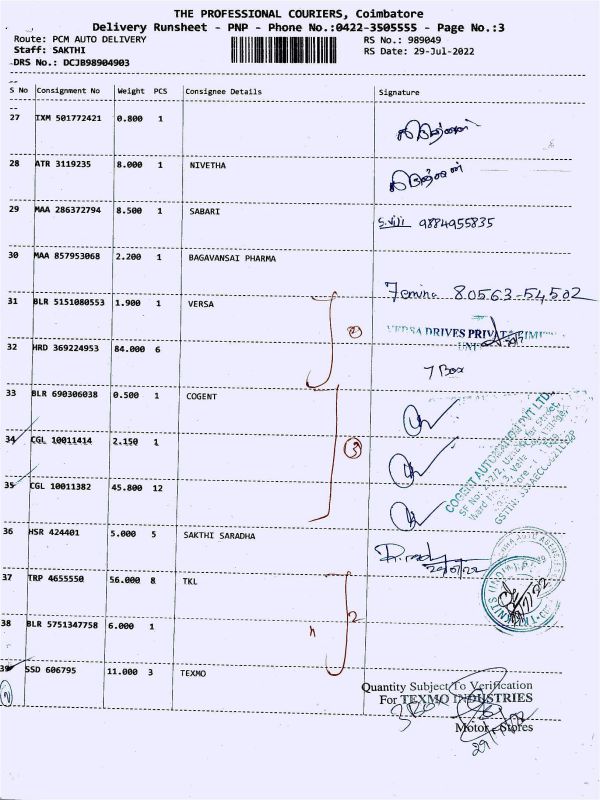 THE PROFESSIONAL COURIERS, Coimbatore
Delivery Runsheet - PNP - Phone No.:0422-3505555 - Page No.:3
Route: PCM AUTO DELIVERY
RS No.: 989049
Staff: SAKTHI
RS Date: 29-Jul-2022
DRS No.: DCJB98904903
S No Consignment No Weight PCS Consignee Details Signature
27 IXM 501772421 0.800 1
28 ATR 3119235 8.000 1 NIVETHA
29 MAA 286372794 8.500 1 SABARI S.Viji 9884955835
30 MAA 857953068 2.200 1 BAGAVANSAI PHARMA
Femina 80563-54502
31 BLR 5151080553 1.900 1 VERSA
VERSA DRIVES PRIVATE LIMI
32 HRD 369224953 84.000 6
7 Box
33 BLR 690306038 0.500 1 COGENT
34 CGL 10011414 2.150 1
3
COGENT AUTOMATION PVT LTD
35 CGL 10011382 45.800 12
36 HSR 424401 5.000 5 SAKTHI SARADHA
37 TRP 4655550 56.000 8 TKL
2
38 BLR 5751347758 6.000 1
39 SSD 606795 11.000 3 TEXMO
Quantity Subject To Verification
For TEXMO INDUSTRIES
Motor - Stores